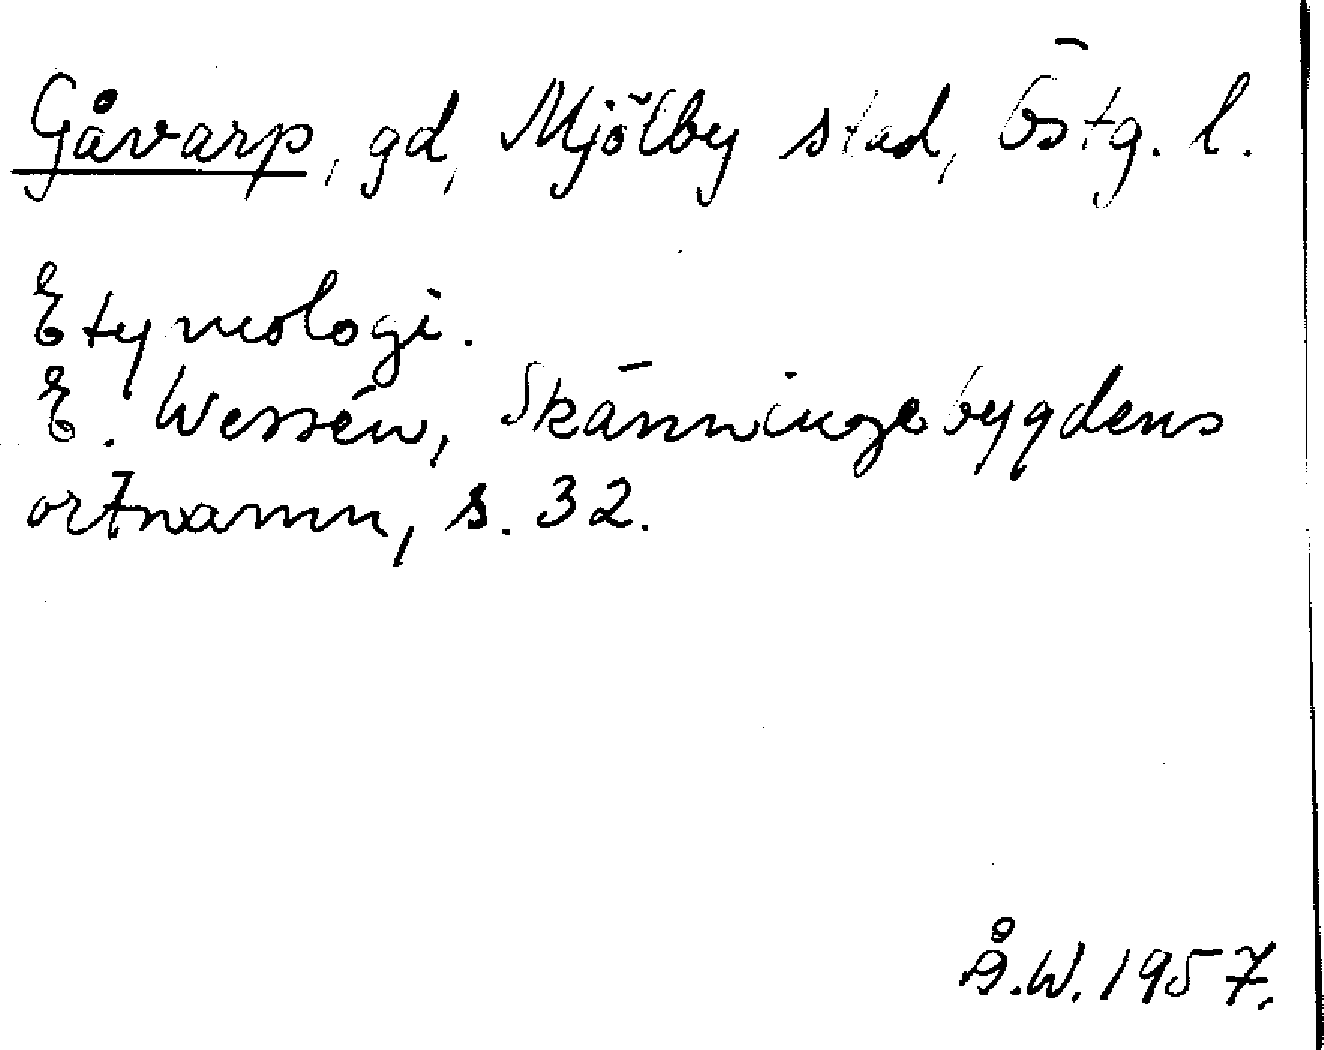 Gåvarp, gd, Mjölby stad, Östg. l.
Etymologi.
E. Wessén, Skänningebygdens
ortnamn, s. 32.
Å.W. 1957.